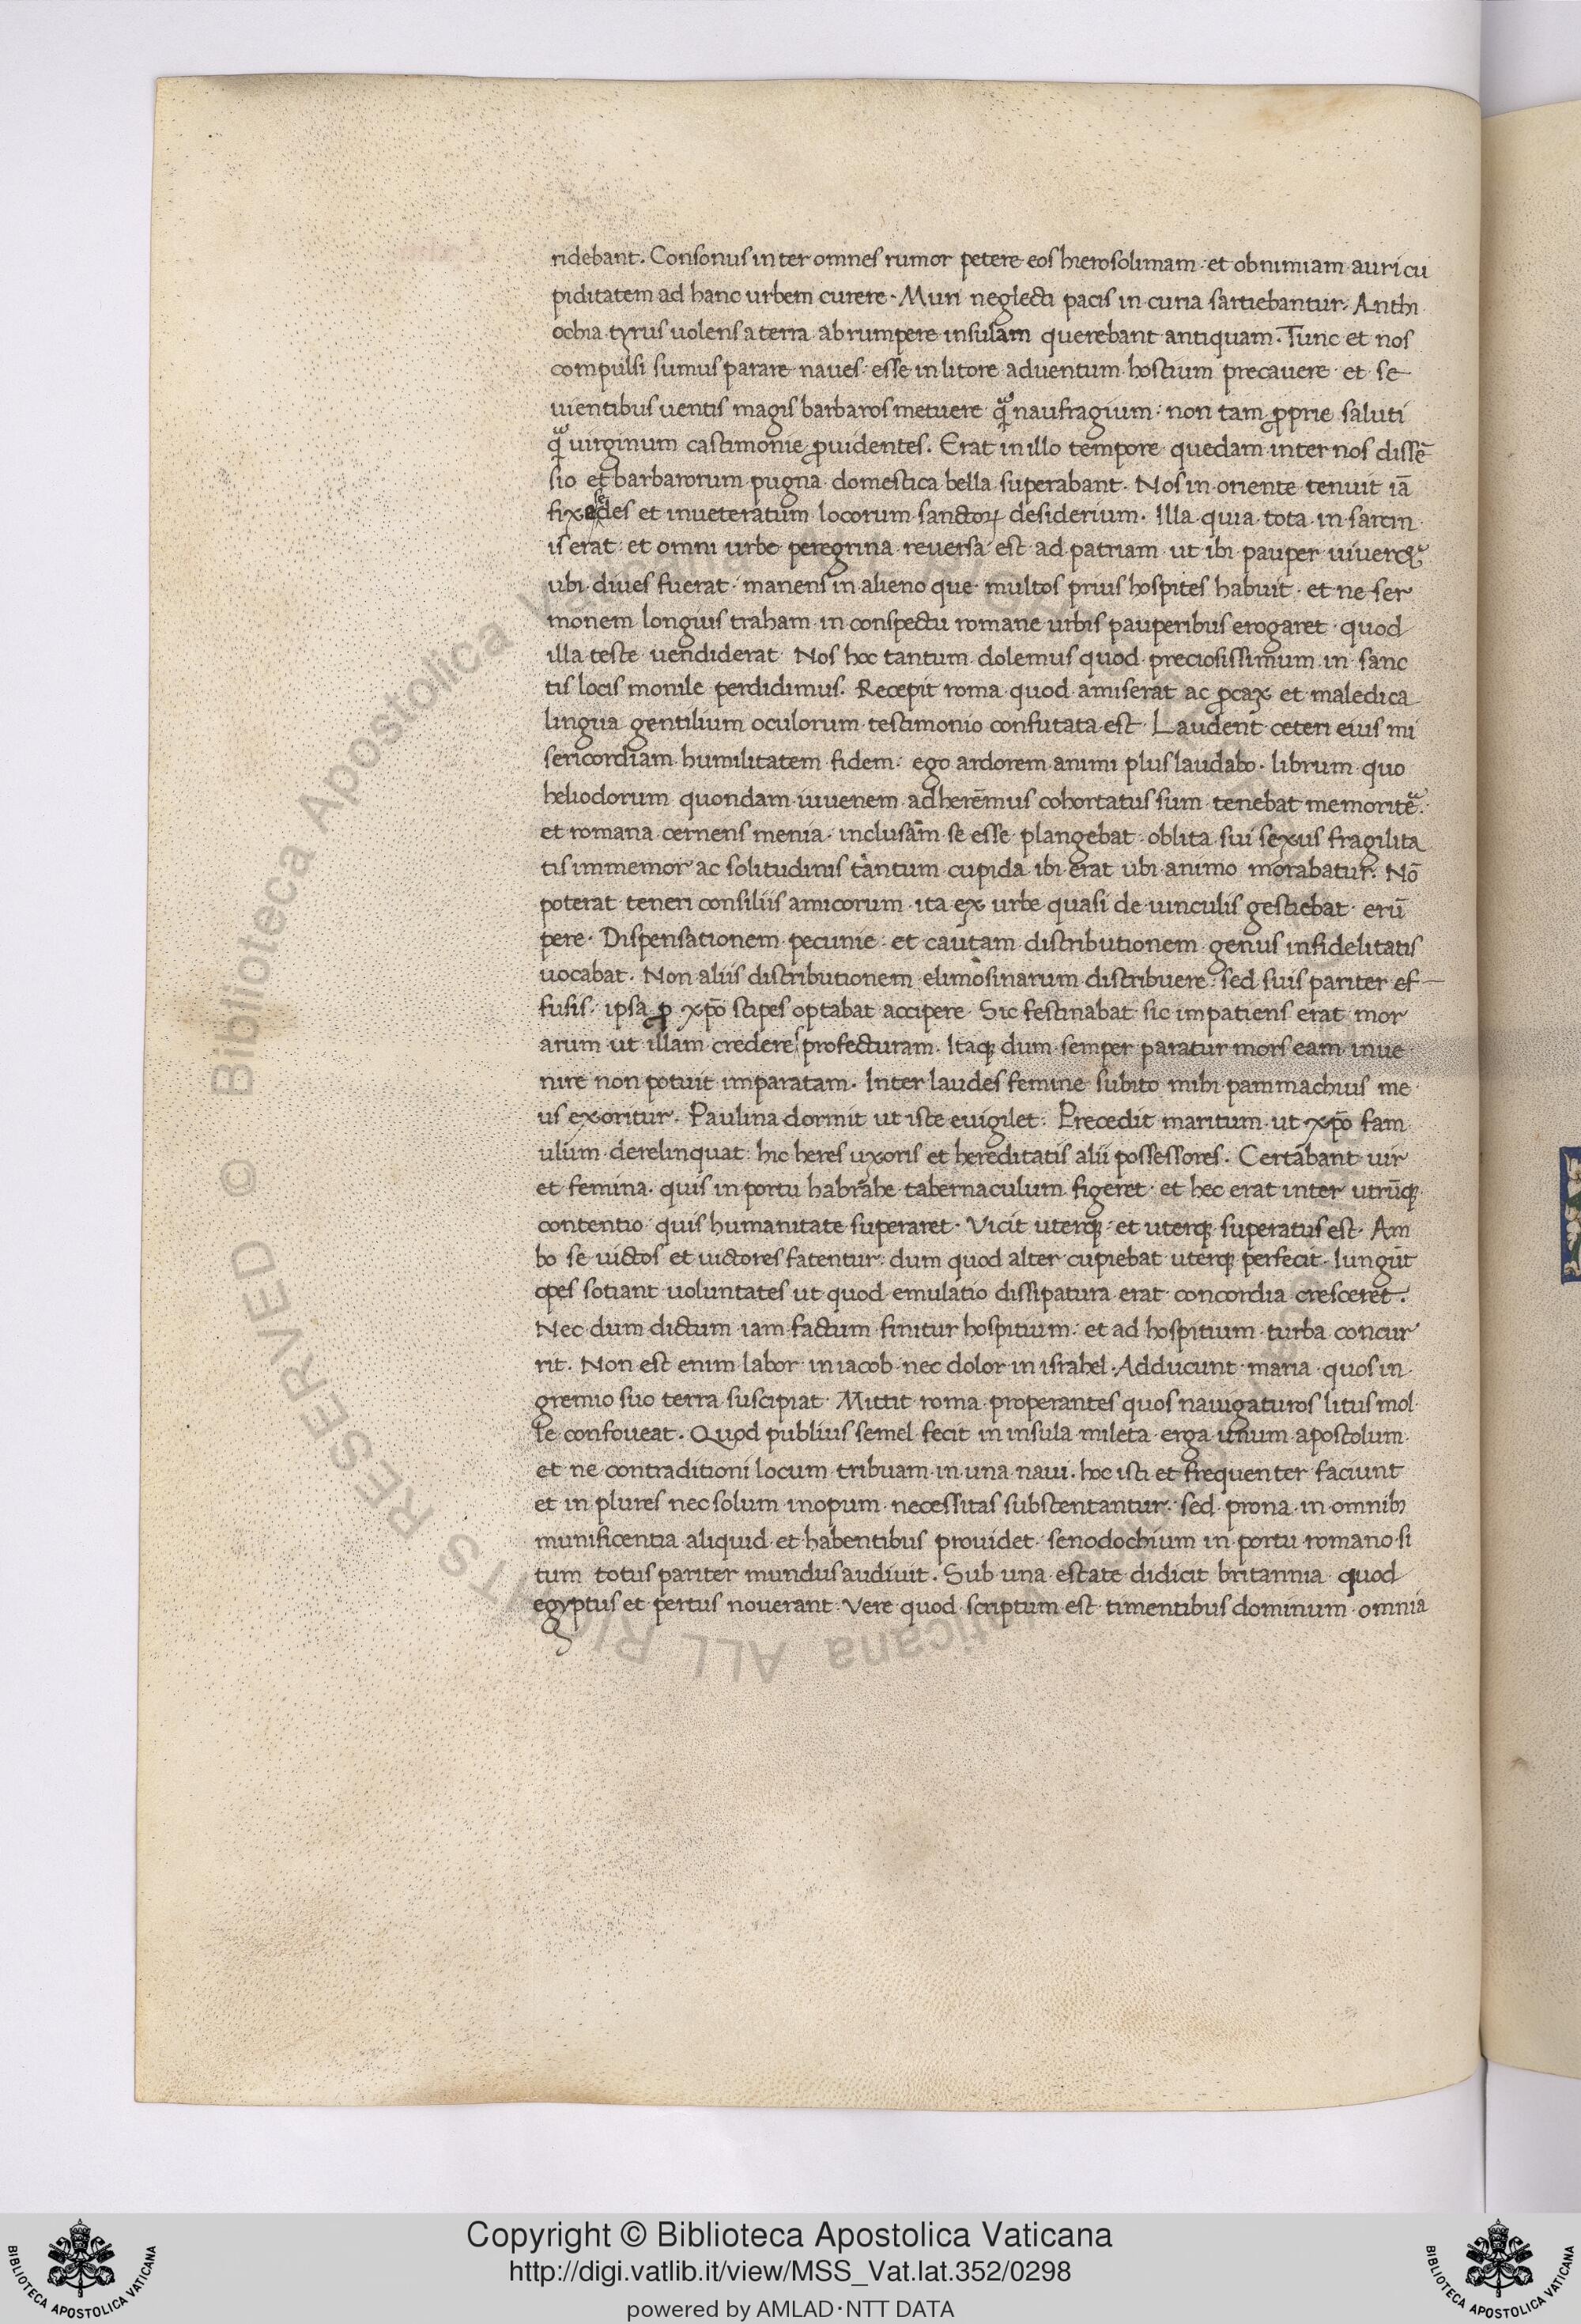 ridebant. Consonus inter omnes rumor petere eos hierosolimam· et ob nimiam auri cu
piditatem ad hanc urbem curere· Muri neglecti pacis in curia sartiebantur. Anthi
ochia tyrus volens a terra abrumpere insulam querebant antiquam. Tunc et nos
compulsi sumus parare naves· esse in litore adventum hostium precavere et se
vientibus ventis magis barbaros metuere qͣ naufragium· non tam ꝓprie saluti
qͣ virginum castimonie ꝓvidentes. Erat in illo tempore quedam inter nos dissē
sio et barbarorum pugna domestica bella superabant. Nos in oriente tenuit iā
fixe sedes et inveteratum locorum sanctoꝝ desiderium. Illa quia tota in sarcin
is erat· et omni urbe peregrina reversa est ad patriam ut ibi pauper viveret
ubi dives fuerat· manens in alieno que multos prius hospites habuit· et ne ser
monem longius traham in conspectu romane urbis pauperibus erogaret quod
illa teste vendiderat Nos hoc tantum dolemus quod preciosissimum in sanc
tis locis monile perdidimus. Recepit roma quod amiserat ac ꝓcax et maledica
lingua gentilium oculorum testimonio confutata est· Laudent ceteri eius mi
sericordiam humilitatem fidem· ego ardorem animi plus laudabo· librum quo
heliodorum quondam iuvenem ad heremus cohortatus sum tenebat memorit
et romana cernens menia· inclusam se esse plangebat· oblita sui sexus fragilita
tis immemor ac solitudinis tantum cupida ibi erat ubi animo morabatur. Nō
poterat teneri consiliis amicorum· ita ex urbe quasi de vinculis gestiebat erū
pere· Dispensationem pecunie et cautam distributionem genus infidelitatis
vocabat. Non aliis distributionem elimosinarum distribuere· sed suis pariter ef
fusis· ipsa ꝓ xp̄o stipes optabat accipere Sic festinabat sic impatiens erat mor
arum ut illam crederes profecturam. Itaqꝫ dum semper paratur mors eam inve
nire non potuit imparatam. Inter laudes femine subito mihi pammachius me
us exoritur. Paulina dormit ut iste evigilet· Precedit maritum ut xp̄o fam
ulum derelinquat· hic heres uxoris et hereditatis alii possessores. Certabant vir
et femina· quis in portu habrahe tabernaculum figeret et hec erat inter utrūqꝫ
contentio quis humanitate superaret· Vicit uterqꝫ et uterqꝫ superatus est· Am
bo se victos et victores fatentur· dum quod alter cupiebat uterqꝫ perfecit· Iungūt
opes sotiant voluntates ut quod emulatio dissipatura erat concordia cresceret.
Nec dum dictum iam factum finitur hospitium· et ad hospitium turba concur
rit. Non est enim labor in iacob nec dolor in israhel. Adducunt maria quos in
gremio suo terra suscipiat· Mittit roma properantes quos navigaturos litus mol
le confoveat. Quod publius semel fecit in insula mileta erga unum apostolum
et ne contraditioni locum tribuam in una navi· hoc isti et frequenter faciunt
et in plures nec solum inopum necessitas substentantur· sed prona in omnibꝫ
munificentia aliquid et habentibus providet· senodochium in portu romano si
tum totus pariter mundus audivit. Sub una estate didicit britannia quod
egyptus et pertus noverant· Vere quod scriptum est timentibus dominum omnia
© Biblioteca Apostolica Vaticana ALL RIGHTS RESERVED
Copyright © Biblioteca Apostolica Vaticana
http://digi.vatlib.it/view/MSS_Vat.lat.352/0298
powered by AMLAD·NTT DATA
BIBLIOTECA APOSTOLICA VATICANA
BIBLIOTECA APOSTOLICA VATICANA